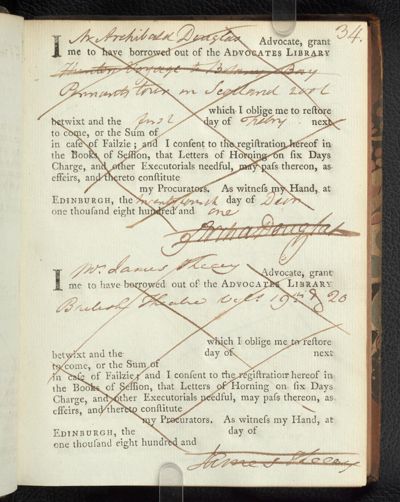 34.
I Mr Archibald Douglas Advocate, grant
me to have borrowed out of the ADVOCATES LIBRARY
Hunters Voyage to Botany Bay
Pennants tour in Scotland 2 vols
which I oblige me to reſtore
betwixt and the first day of Febry next
to come, or the Sum of
in caſe of Failzie; and I conſent to the regiſtration hereof in
the Books of Seſſion, that Letters of Horning on ſix Days
Charge, and other Executorials needful, may paſs thereon, as
effeirs, and thereto conſtitute
my Procurators. As witneſs my Hand, at
EDINBURGH, the day of Decr
one thouſand eight hundred and one
Archd Douglas
I Mr James Advocate, grant
me to have borrowed out of the ADVOCATES LIBRARY
British Theatre vols 19th & 20
which I oblige me to reſtore
betwixt and the day of next
to come, or the Sum of
in caſe of Failzie; and I conſent to the regiſtration hereof in
the Books of Seſſion, that Letters of Horning on ſix Days
Charge, and other Executorials needful, may paſs thereon, as
effeirs, and thereto conſtitute
my Procurators. As witneſs my Hand, at
EDINBURGH, the day of
one thouſand eight hundred and
James